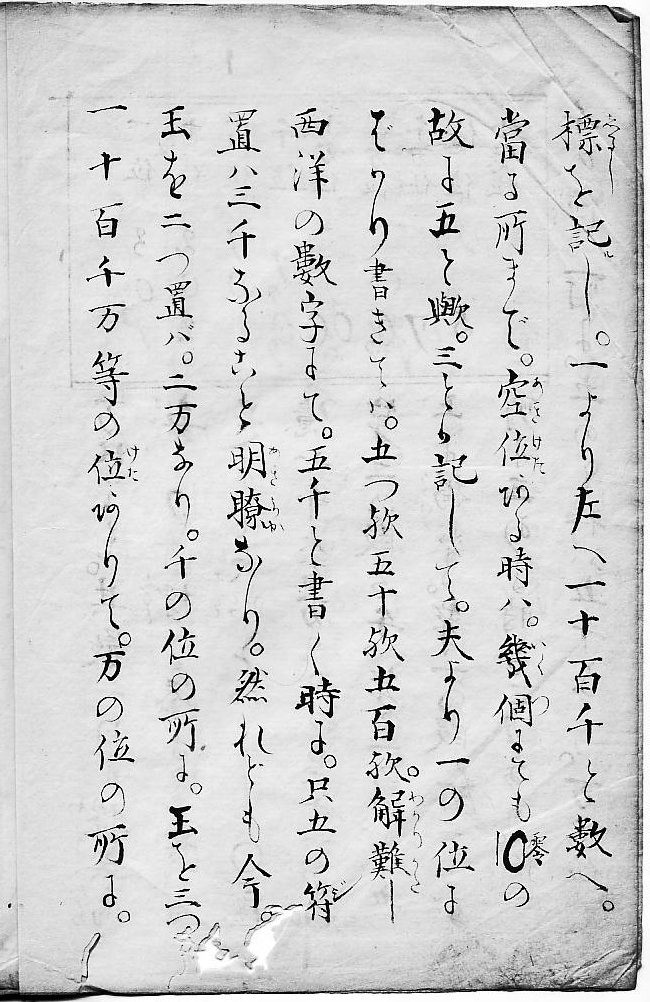 一十百千万等の位ありて。万の位の所に。
玉を二つ置バ。二万なり。千の位の所に。玉を三つ
置ハ三千なること明瞭なり。然れども今。
西洋の數字にて。五千と書く時に。只五の符
ばかり書きてハ。五つ欤五十欤五百欤。解難し
故に五と歟。三とか記して。夫より一の位に
當る所まで。空位ある時ハ。幾個にても10の
標を記し。一より左へ一十百千と數へ。